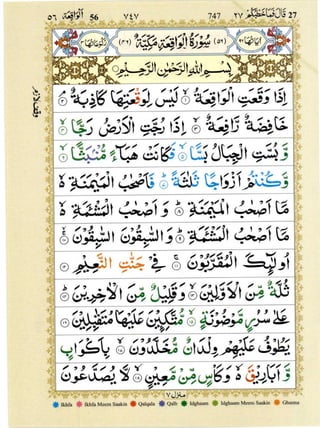 ٥٦ اَلْوَاقِعَة 56 ٧٤٧ 747 ٢٧ قَالَ فَمَا خَطْبُكُمْ 27
اٰيَاتُهَا ٩٦ (٥٦) سُوْرَةُ الْوَاقِعَةِ مَكِّيَّةٌ (٤٦) رُكُوْعَاتُهَا ٣
بِسْمِ اللّٰهِ الرَّحْمٰنِ الرَّحِيْمِ
اِذَا وَقَعَتِ الْوَاقِعَةُ ۙ١ لَيْسَ لِوَقْعَتِهَا كَاذِبَةٌ ۘ٢
خَافِضَةٌ رَّافِعَةٌ ۙ٣ اِذَا رُجَّتِ الْاَرْضُ رَجًّا ۙ٤
وَّ بُسَّتِ الْجِبَالُ بَسًّا ۙ٥ فَكَانَتْ هَبَآءً مُّنْۢبَثًّا ۙ٦
وَّ كُنْتُمْ اَزْوَاجًا ثَلٰثَةً ؕ٧ فَاَصْحٰبُ الْمَيْمَنَةِ ۙ۬
مَاۤ اَصْحٰبُ الْمَيْمَنَةِ ؕ٨ وَ اَصْحٰبُ الْمَشْـَٔمَةِ ۙ۬
مَاۤ اَصْحٰبُ الْمَشْـَٔمَةِ ؕ٩ وَ السّٰبِقُوْنَ السّٰبِقُوْنَ ۚۙ١٠
اُولٰٓئِكَ الْمُقَرَّبُوْنَ ۚ١١ فِيْ جَنّٰتِ النَّعِيْمِ ١٢
ثُلَّةٌ مِّنَ الْاَوَّلِيْنَ ۙ١٣ وَ قَلِيْلٌ مِّنَ الْاٰخِرِيْنَ ؕ١٤
عَلٰى سُرُرٍ مَّوْضُوْنَةٍ ۙ١٥ مُّتَّكِـِٕيْنَ عَلَيْهَا مُتَقٰبِلِيْنَ ١٦
يَطُوْفُ عَلَيْهِمْ وِلْدَانٌ مُّخَلَّدُوْنَ ۙ١٧ بِاَكْوَابٍ
وَّ اَبَارِيْقَ ۙ۬ وَ كَاْسٍ مِّنْ مَّعِيْنٍ ۙ١٨ لَّا يُصَدَّعُوْنَ
منزل ٧
Ikhfa Ikhfa Meem Saakin Qalqala Qalb Idghaam Idghaam Meem Saakin Ghunna